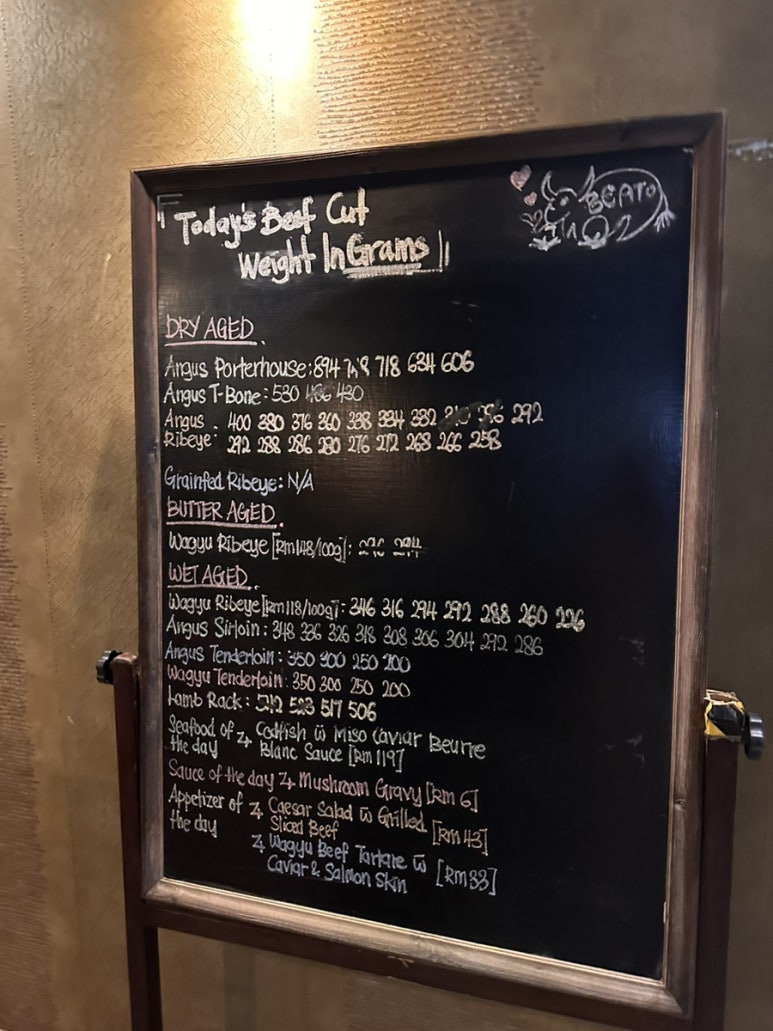 Today's Beef Cut
Weight In Grams
BEATO
DRY AGED
Angus Porterhouse: 894 718 684 606
Angus T-Bone: 530 430
Angus : 400 380 376 360 338 334 332 292
Ribeye: 292 288 286 280 276 272 268 266 258
Grainfed Ribeye: N/A
BUTTER AGED
Wagyu Ribeye [RM148/100g]: 296 294
WET AGED
Wagyu Ribeye [RM118/100g]: 346 316 294 292 288 260 226
Angus Sirloin: 348 336 326 318 308 306 304 292 286
Angus Tenderloin: 350 300 250 200
Wagyu Tenderloin: 350 300 250 200
Lamb Rack: 523 517 506
Seafood of the day ↳ Codfish w̄ Miso Caviar Beurre
Blanc Sauce [RM119]
Sauce of the day ↳ Mushroom Gravy [RM 6]
Appetizer of the day ↳ Caesar Salad w̄ Grilled
Sliced Beef [RM43]
↳ Wagyu Beef Tartare w̄
Caviar & Salmon Skin [RM33]